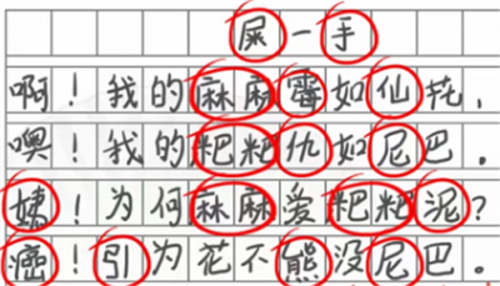 屎一手
啊！我的麻麻霉如仙花，
噢！我的粑粑仇如尼巴。
姨！为何麻麻爱粑粑泥？
癌！引为花不熊没尼巴。